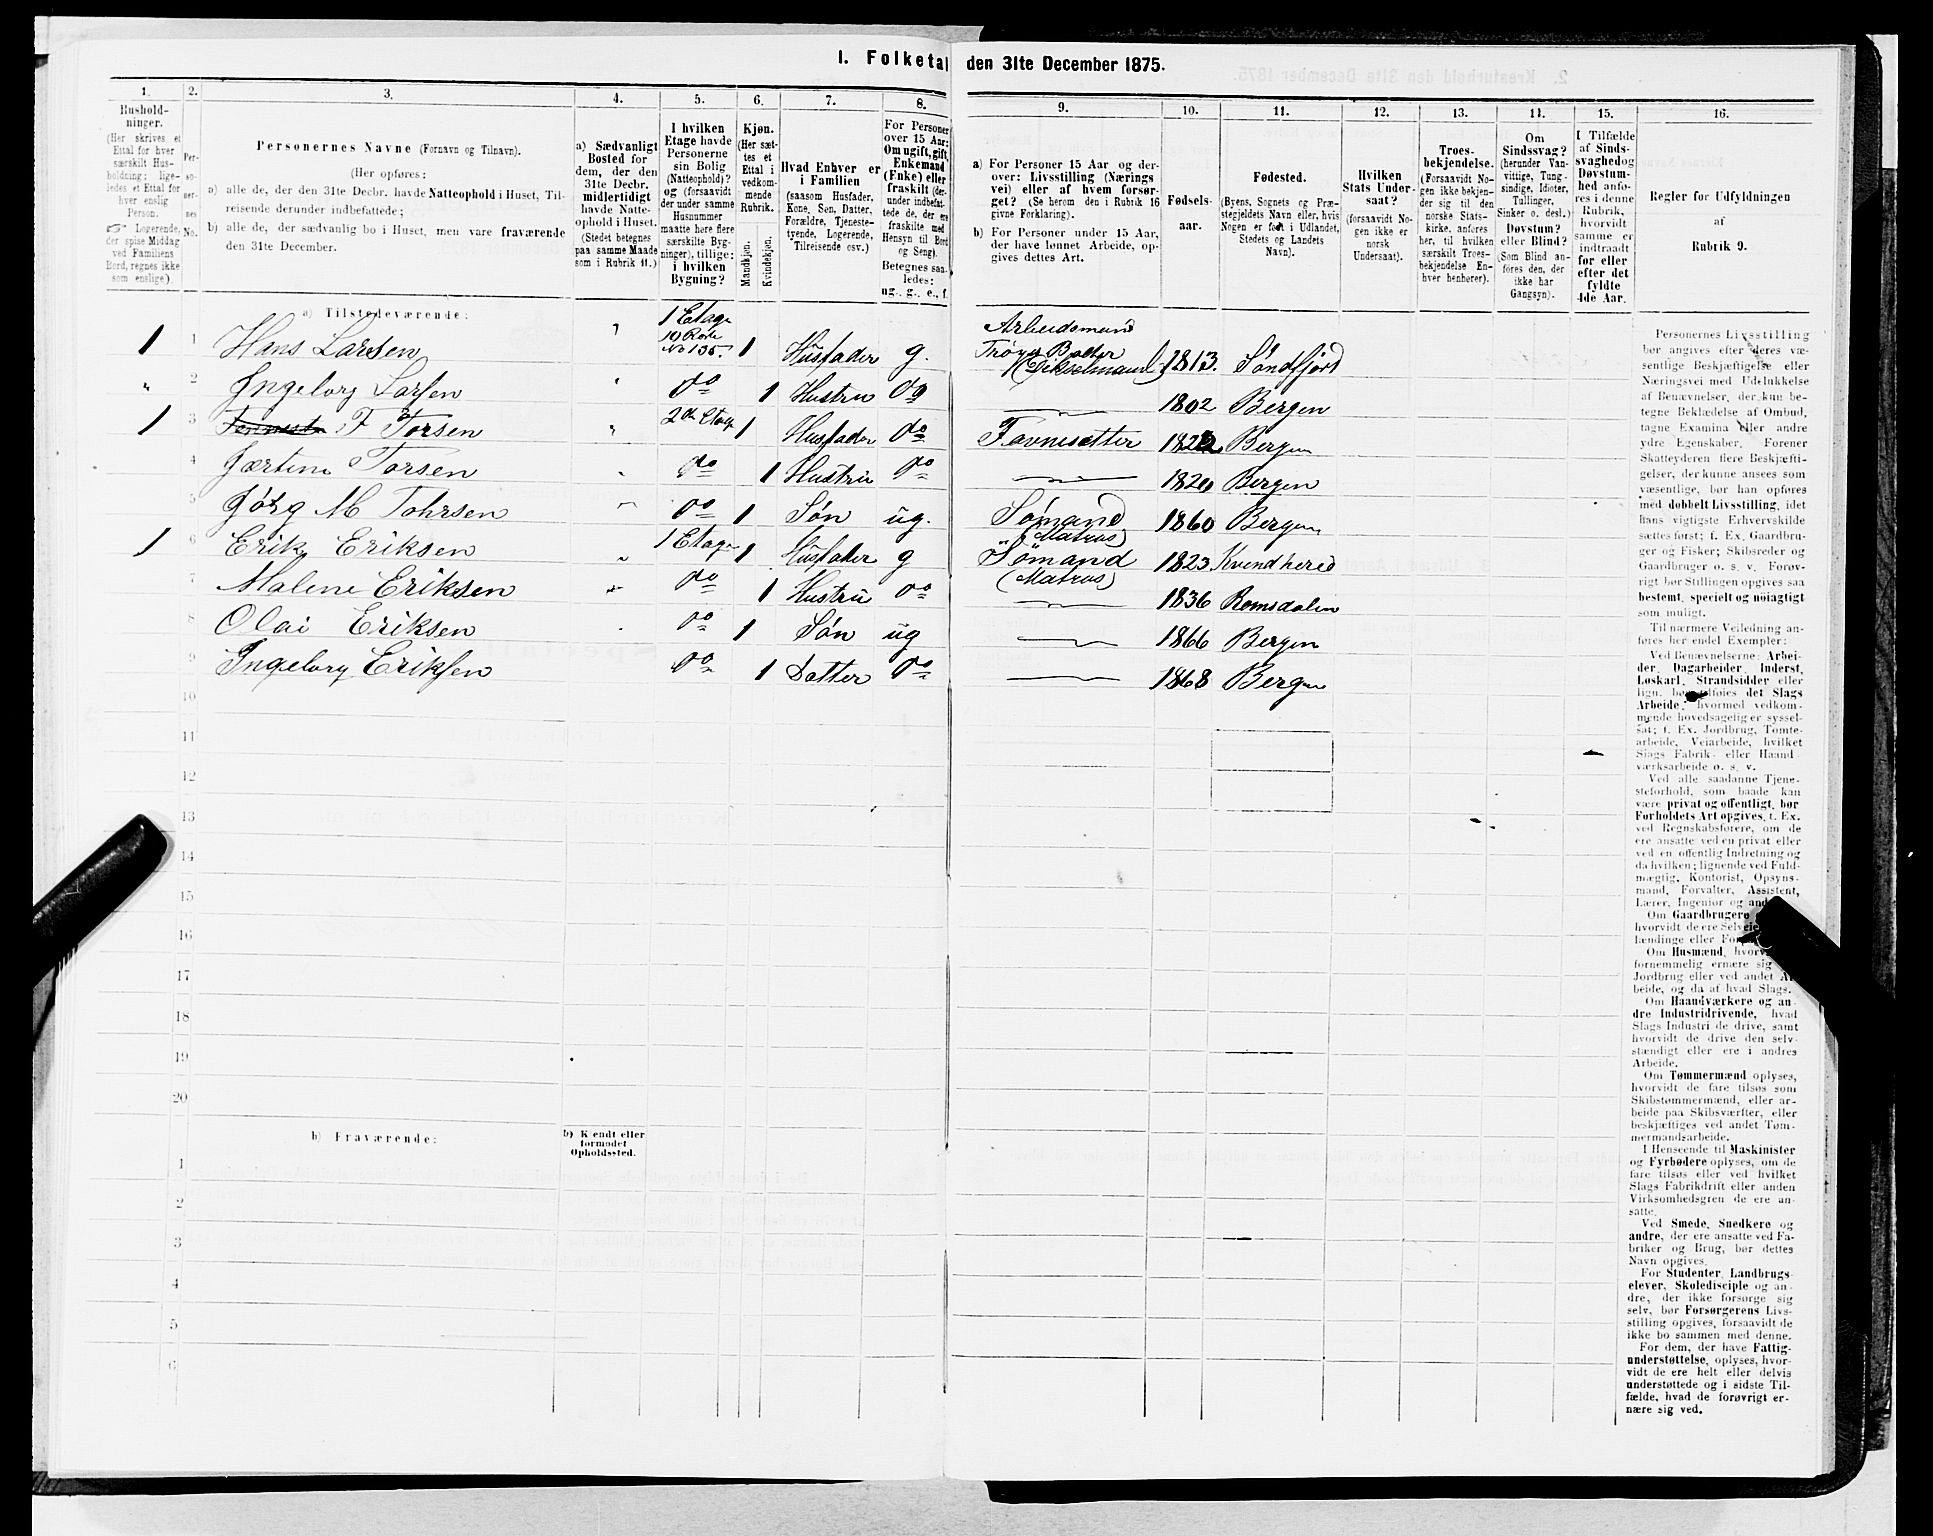 I. Folketal den 31te December 1875.
1.
2.
3.
4.
5.
6.
7.
8.
9.
10.
11.
12.
13.
14.
15.
16.
Hushold-
ninger.
(Her skrives et
Ettal for hver
særskilt Hus-
holdning; lige-
ledes et Ettal for
hver enslig
Person.
☞ Logerende,
der spise Middag
ved Familiens
Bord, regnes ikke
som enslige).
Per-
so-
ner-
nes
No.
Personernes Navne (Fornavn og Tilnavn).
(Her opføres:
a) alle de, der den 31te Decbr. havde Natteophold i Huset, Til-
reisende derunder indbefattede;
b) alle de, der sædvanlig bo i Huset, men vare fraværende
den 31te December.
a) Sædvanligt
Bosted for
dem, der den
31te Decbr.
midlertidigt
havde Natte-
ophold i Huset.
(Stedet betegnes
paa samme Maade
som i Rubrik 11.)
I hvilken
Etage havde
Personerne
sin Bolig
(Natteophold)?
og (forsaavidt
der under samme
Husnummer
maatte høre flere
særskilte Byg-
ninger), tillige:
i hvilken
Bygning?
Kjøn.
(Her sæt-
tes et
Ettal i
vedkom-
mende
Rubrik.
Mandkjøn.
Kvindekjøn.
Hvad Enhver er
i Familien
(saasom Husfader,
Kone, Søn, Datter,
Forældre, Tjeneste-
tyende, Logerende,
Tilreisende osv.)
For Personer
over 15 Aar:
Om ugift, gift,
Enkemand
(Enke) eller
fraskilt (der-
under indbefat-
tede de, der ere
fraskilte med
Hensyn til Bord
og Seng).
Betegnes saa-
ledes:
ug., g., e., f.
a) For Personer 15 Aar og der-
over: Livsstilling (Nærings
vei) eller af hvem forsør-
get? (Se herom den i Rubrik 16
givne Forklaring).
b) For Personer under 15 Aar,
der have lønnet Arbeide, op-
gives dettes Art.
Fødsels-
aar.
Fødested.
(Byens, Sognets og Præ-
stegjeldets Navn eller, hvis
Nogen er født i Udlandet,
Stedets og Landets
Navn).
Hvilken
Stats Under-
saat?
(forsaavidt No-
gen ikke er
norsk
Undersaat).
Troes-
bekjendelse.
(Forsaavidt No-
gen ikke bekjen-
der sig til den
norske Stats-
kirke, anføres
her, til hvilken
særskilt Troes-
bekjendelse En-
hver henhører).
Om
Sindssvag?
(herunder Van-
vittige, Tung-
sindige, Idioter,
Tullinger,
Sinker o. desl.)
Døvstum?
eller Blind?
(Som Blind an-
føres den, der
ikke har
Gangsyn).
I Tilfælde
af Sinds-
svaghed og
Døvstum-
hed anfø-
res i denne
Rubrik,
hvorvidt
samme er
indtraadt
før eller
efter det
fyldte
4de Aar.
Regler for Udfyldningen
af
Rubrik 9.
a) Tilstedeværende:
1 1 Hans Larsen 1 Etage 10 Rode No 135. 1 Husfader g. Arbeidsmand 1813. Søndfjord
2 Ingeborg Larsen do 1 Hustru do 1802 Bergen
1 3 F Torsen 2den Etage 1 Husfader do Favnesætter Bergen
4 Torsen do 1 Hustru do 1820 Bergen
5 M Tohrsen do 1 Søn ug. Sømand (Matros) 1860 Bergen
1 6 Erik Eriksen 1 Etage 1 Husfader g Sømand (Matros) 1823 Kvindhered
7 Malene Eriksen do 1 Hustru do 1836 Romsdalen
8 Olai Eriksen do 1 Søn ug 1866 Bergen
9 Ingeborg Eriksen do 1 Datter do 1868 Bergen
10
11
12
13
14
15
16
17
18
19
20
b) Fraværende:
b) Kjendt eller
formodet
Opholdssted.
1
2
3
4
5
6
Personernes Livsstilling
bør angives efter deres væ-
sentlige Beskjæftigelse eller
Næringsvei med Udelukkelse
af Benævnelser, der kun be-
tegne Beklædelse af Ombud,
tagne Examina eller andre
ydre Egenskaber. Forener
Skatteyderen flere Beskjæfti-
gelser, der kunne ansees som
væsentlige, bør han opføres
med dobbelt Livsstilling, idet
hans vigtigste Erhvervskilde
sættes først; f. Ex. Gaardbru-
ger og Fisker; Skibsreder og
Gaardbruger o. s. v. Forøv-
rigt bør Stillingen opgives saa
bestemt, specielt og nøiagtigt
som muligt.
Til nærmere Veiledning an-
føres her endel Exempler:
Ved Benævnelserne: Arbei-
der, Dagarbeider, Inderst,
Løskarl, Strandsidder eller
lign. bør tilføies det Slags
Arbeide, hvormed vedkom-
mende hovedsagelig er syssel-
sat; f. Ex. Jordbrug, Tomte-
arbeide, Veiarbeide, hvilket
Slags Fabrik- eller Haand-
værksarbeide o. s. v.
Ved alle saadanne Tjene-
steforhold, som baade kan
være privat og offentligt, bør
Forholdets Art opgives, f. Ex.
ved Regnskabsførere, om de
ere ansatte ved en privat eller
ved en offentlig Indretning og
da hvilken; lignende ved Fuld-
mægtig, Kontorist, Opsyns-
mand, Forvalter, Assistent,
Lærer, Ingeniør og
Om Gaardbrugere
hvorvidt de ere
lændinge eller
Om Husmænd,
fornemmelig ernære sig
Jordbrug eller ved andet Ar-
beide, og da af hvad Slags.
Om Haandværkere og an-
dre Industridrivende, hvad
Slags Industri de drive, samt
hvorvidt de drive den selv-
stændigt eller ere i andres
Arbeide.
Om Tømmermænd oplyses,
hvorvidt de fare tilsøs som
Skibstømmermænd, eller ar-
beide paa Skibsværfter, eller
beskjæftiges ved andet Tøm-
mermandsarbeide.
I Henseende til Maskinister
og Fyrbødere oplyses, om de
fare tilsøs eller ved hvilket
Slags Fabrikdrift eller anden
Virksomhedsgren de ere an-
satte.
Ved Smede, Snedkere og
andre, der ere ansatte ved Fa-
briker og Brug, bør dettes
Navn opgives.
For Studenter, Landbrugs-
elever, Skoledisciple og an-
dre, der ikke forsørge sig
selv, bør Forsørgerens Livs-
stilling opgives, forsaavidt de
ikke bo sammen med denne.
For dem, der have Fattig-
understøttelse, oplyses, hvor-
vidt de ere helt eller delvis
understøttede og i sidste Til-
fælde, hvad de forøvrigt er-
nære sig ved.